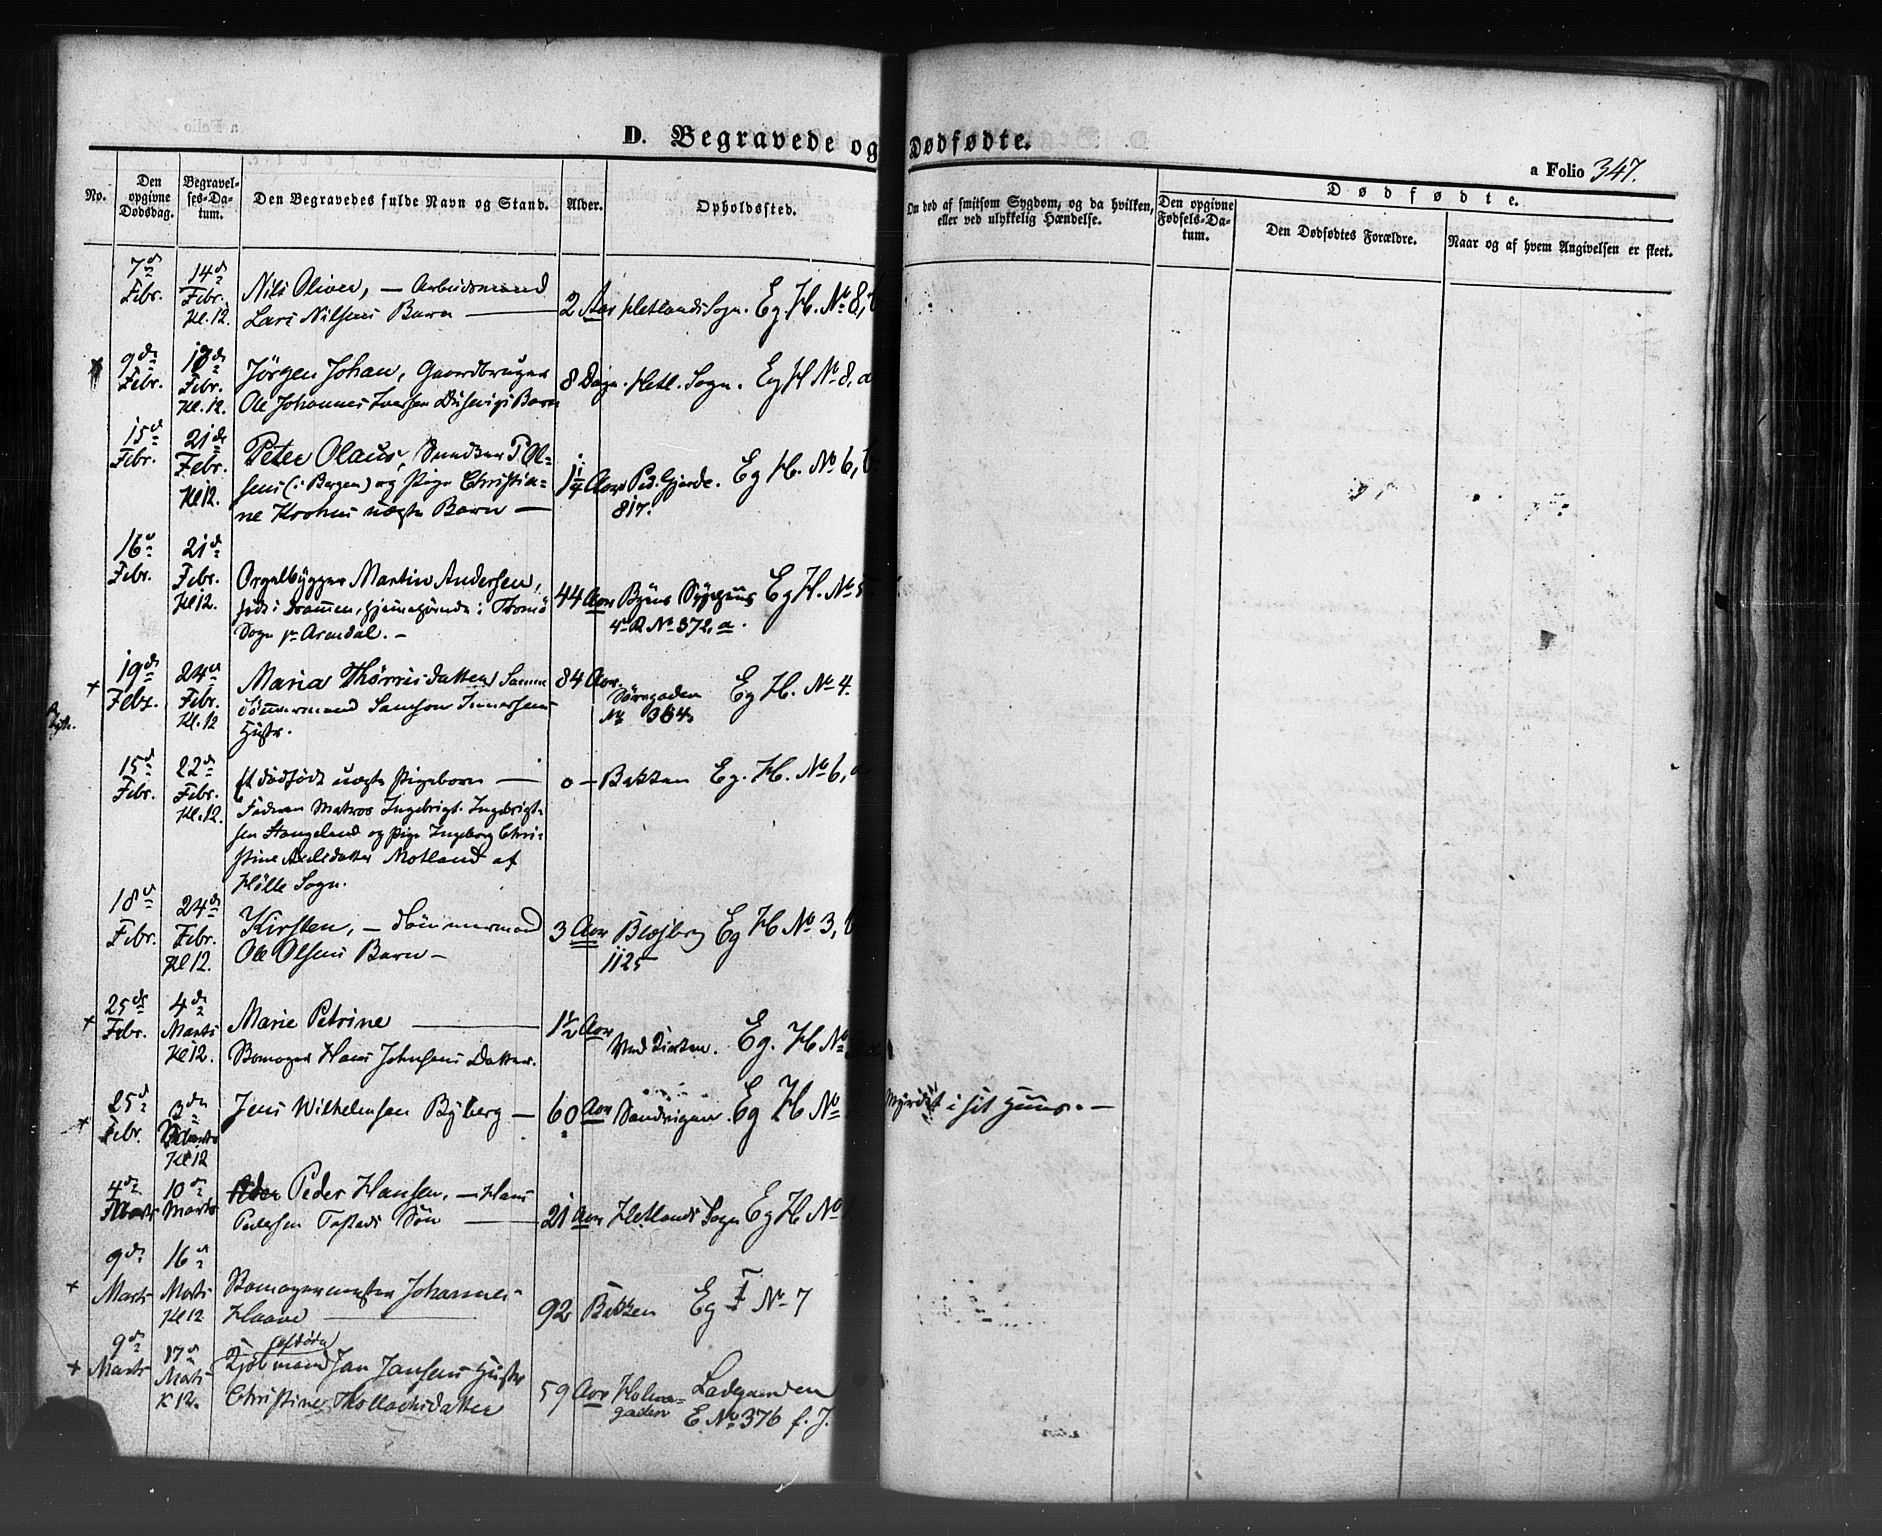 D. Begravede og Dødfødte.
a Folio 347.
No.
Den opgivne Dødsdag.
Begravelses-Datum.
Den Begravedes fulde Navn og Stand.
Alder.
Opholdssted.
Om død af smitsom Sygdom, og da hvilken, eller ved ulykkelig Hændelse.
Dødfødte.
Den opgivne Fødsels-Datum.
Den Dødfødtes Forældre.
Naar og af hvem Angivelsen er skeet.
7de Febr. 14de Febr. Kl. 12. Nils Oliver, — Arbeidsmand
Lars Nilsens Barn — 2 Aar Hetlands Sogn. Eg. H. No 8,
9de Febr. Febr. Kl. 12. Jørgen Johan, Gaardbruger
Ole Johannes Iversen Barn 8 Dage. Hetl. Sogn. Eg H No 8, a
15d Febr. 21de Febr. Kl 12. Peter Olaus,
sens (i Bergen) og Pige Christia-
ne Krohns uægte Barn — 1 1/4 Aar Ped. Gjerde. 817. Eg H. No 6, b
16d Febr. 21de Febr. Kl 12. Orgelbygger Martin Andersen,
født i Drammen, hjemmehørende i Tromø
Sogn pr Arendal. — 44 Aar Byens Sygehus 4de R No 372, a. Eg H. No 5
+ 19de Febr. 24de Febr. Kl. 12 Maria Thørrisdatter,
Tømmermand Samson
Hustr. 84 Aar. No 364. Eg H. No 4.
15d Febr. 22de Febr. Kl. 12. Et dødfødt uægte Pigebarn — 0 — Bakken Eg. H. No 6,
Faderen Matros Ingebrigt Ingebrigt-
sen Stangeland og Pige Ingeborg Chri-
stine Motland af
Hølle Sogn.
18d Febr. 24de Febr. Kl 12. Kirsten, — Tømmermand
Ole Olsens Barn — 3 Aar Blæsberg 1125 Eg H No 3, b
+ 25de Febr. 4de Marts Kl 12. Marie Petrine —
Bomager Hans Johnsens Datter. 1 1/2 Aar Ved Kirken. Eg. H No
+ 25d Febr. 3de Marts Kl 12 Jens Wilhelmsen Byberg — 60 Aar Sandvigen. Eg H No
Myrdet i sit Huus. —
4de Marts 10de Marts Peder Hansen, — Hans
Pedersen Tasteds Søn — 21 Aar Hetlands Sogn Eg H No
+ 9de Marts 16de Marts Kl 12 Johannes
Haave — 92 Bakken Eg I No 7
+ 9de Marts 17de Marts K 12. Kjøbmand Jan Jansens Hustr
Christine Thollachsdatter 59 Aar Holme-
gaden Ladegaarden
E No 376 f. J.